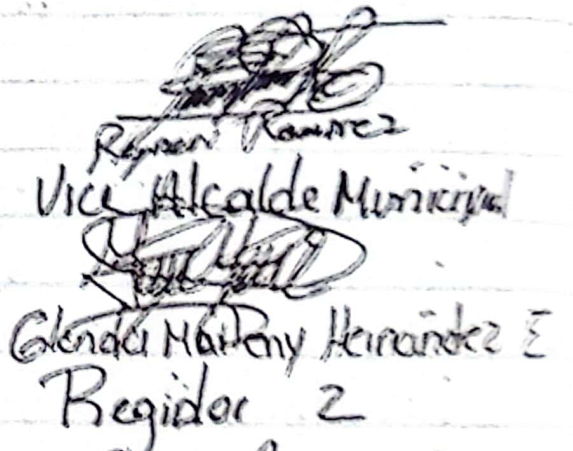 Ramon Ramirez
Vice Alcalde Municipal
Glenda Hernández E
Regidor 2